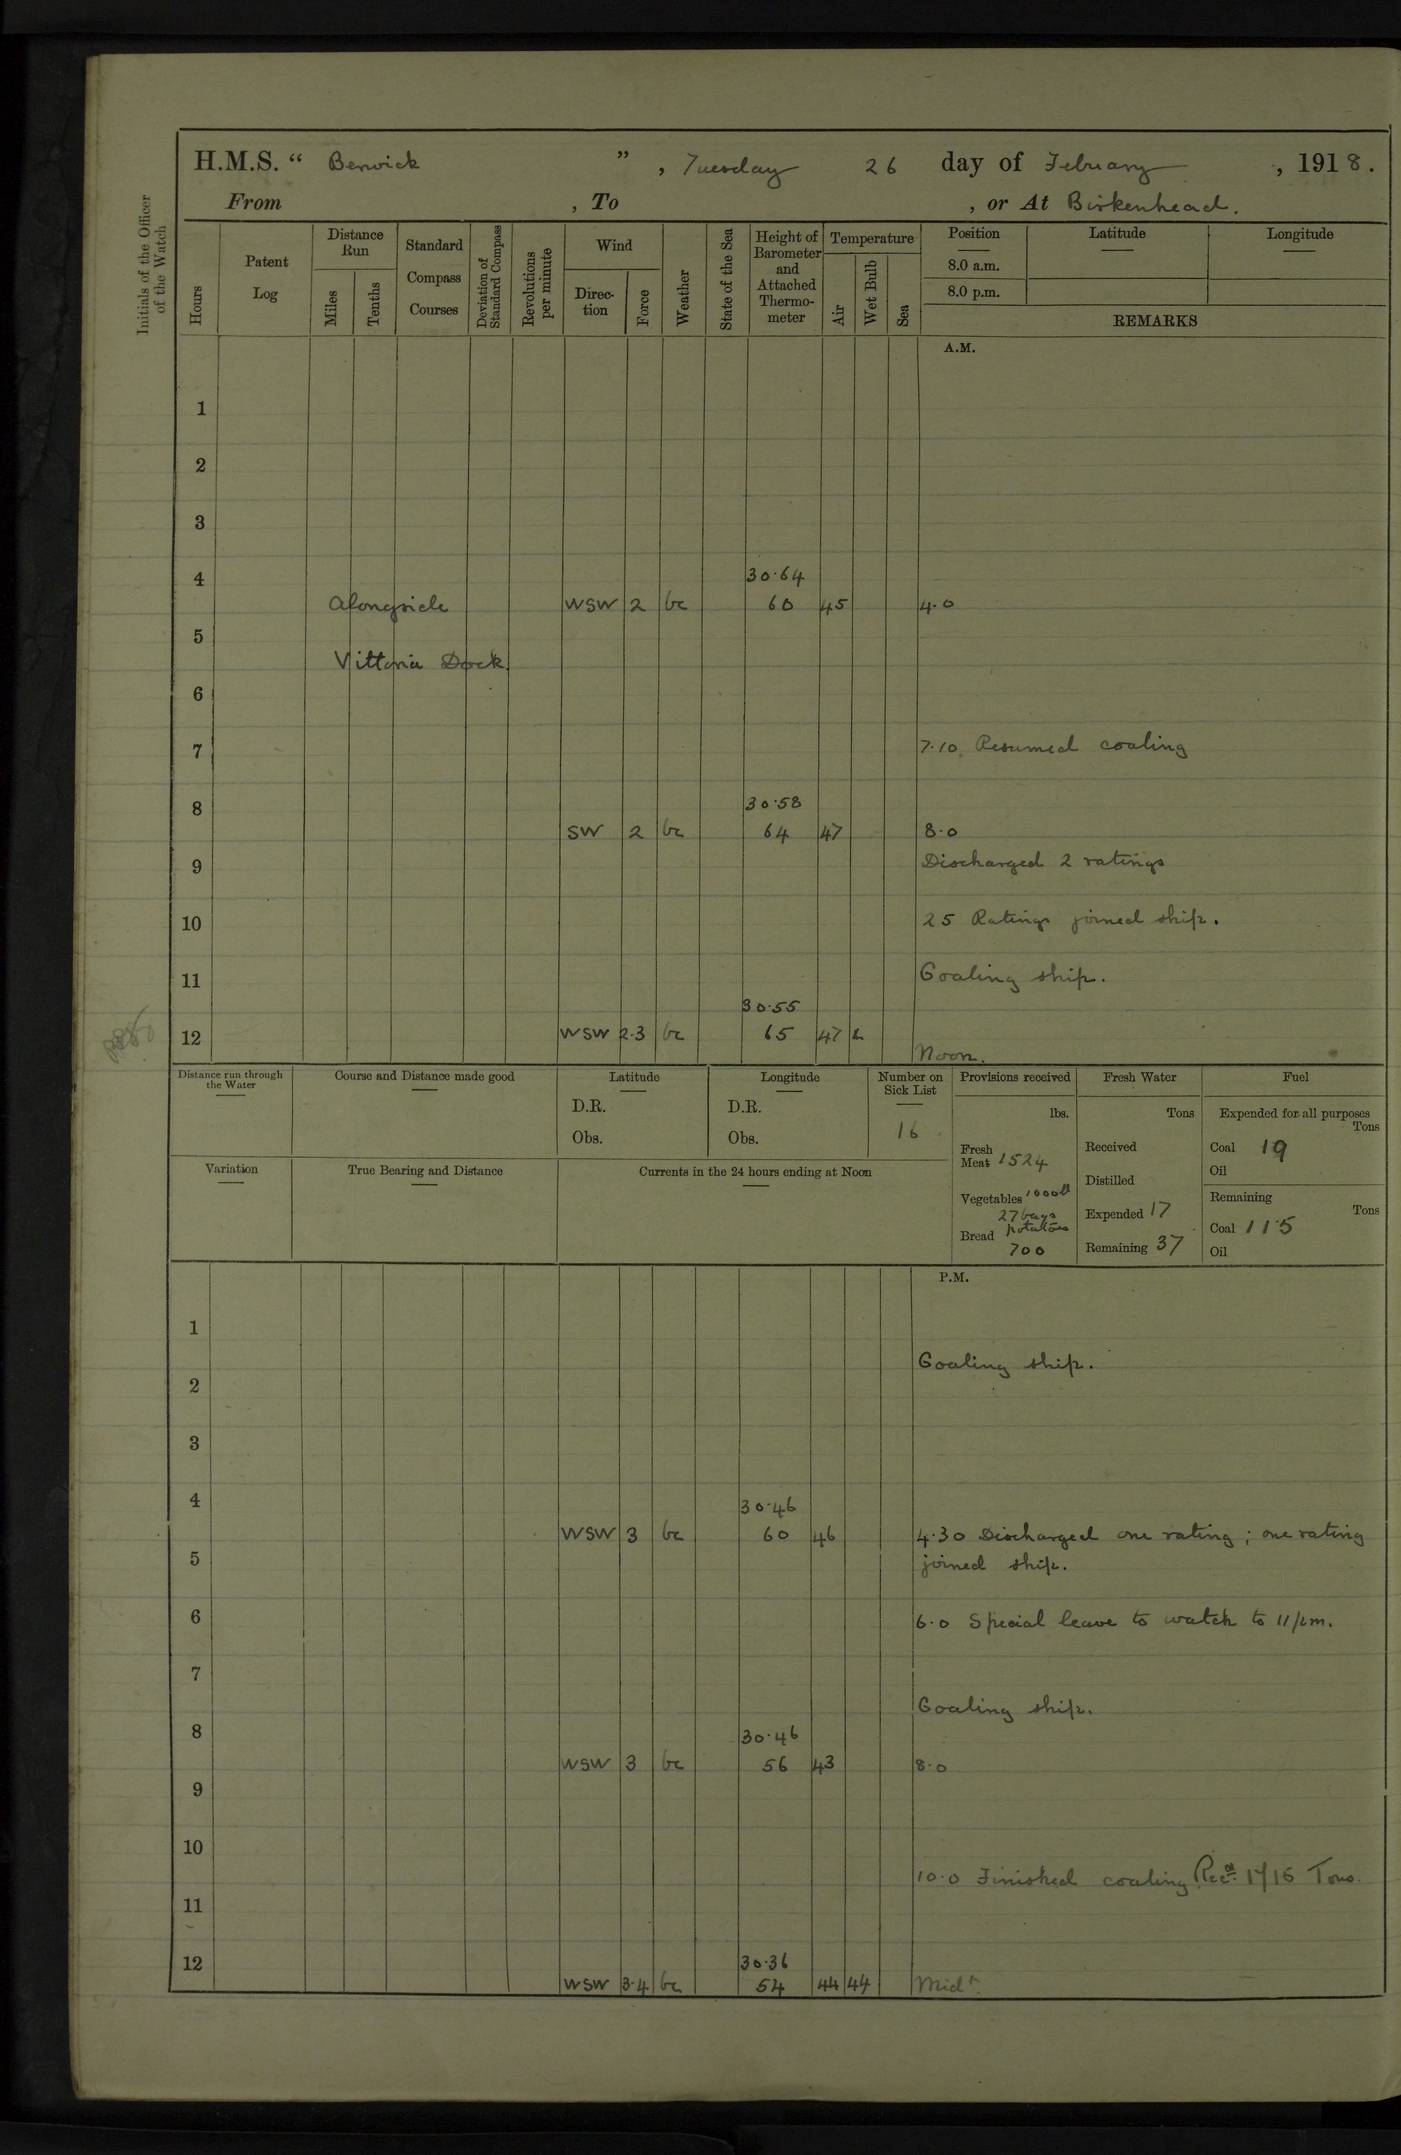 H.M.S. “ Berwick ” , Tuesday 26 day of February , 1918.
From , To , or At Birkenhead.
Initials of the Officer
of the Watch
Hours
Patent
Log
Distance
Run
Miles
Tenths
Standard
Compass
Courses
Deviation of
Standard Compass
Revolutions
per minute
Wind
Direc-
tion
Force
Weather
State of the Sea
Height of
Barometer
and
Attached
Thermo-
meter
Temperature
Air
Wet Bulb
Sea
Position
8.0 a.m.
8.0 p.m.
Latitude
Longitude
REMARKS
A.M.
1
2
3
4 30·64
Alongside WSW 2 bc 60 45 4.0
5
Vittoria Dock.
6
7 7.10 Resumed coaling
8 30·58
SW 2 bc 64 47 8.0
9 Discharged 2 ratings
10 25 Ratings joined ship.
11 Coaling ship.
30·55
12 WSW 2·3 bc 65 47
Noon.
Distance run through
the Water
Course and Distance made good
Latitude
D.R.
Obs.
Longitude
D.R.
Obs.
Number on
Sick List
16
Provisions received
lbs.
Fresh
Meat 1524
Vegetables 1000lb
27 bags
potatoes
Bread
700
Fresh Water
Tons
Received
Distilled
Expended 17
Remaining 37
Fuel
Expended for all purposes
Tons
Coal 19
Oil
Remaining
Tons
Coal 115
Oil
Variation
True Bearing and Distance
Currents in the 24 hours ending at Noon
P.M.
1
Coaling ship.
2
3
4 30·46
WSW 3 bc 60 46 4.30 Discharged one rating ; one rating
5 joined ship.
6 6.0 Special leave to watch to 11 pm.
7
Coaling ship.
8 30·46
WSW 3 bc 56 43 8.0
9
10
10.0 Finished coaling Recd. 1716 Tons.
11
12 30·36
WSW 3·4 bc 54 44 44 Midt.